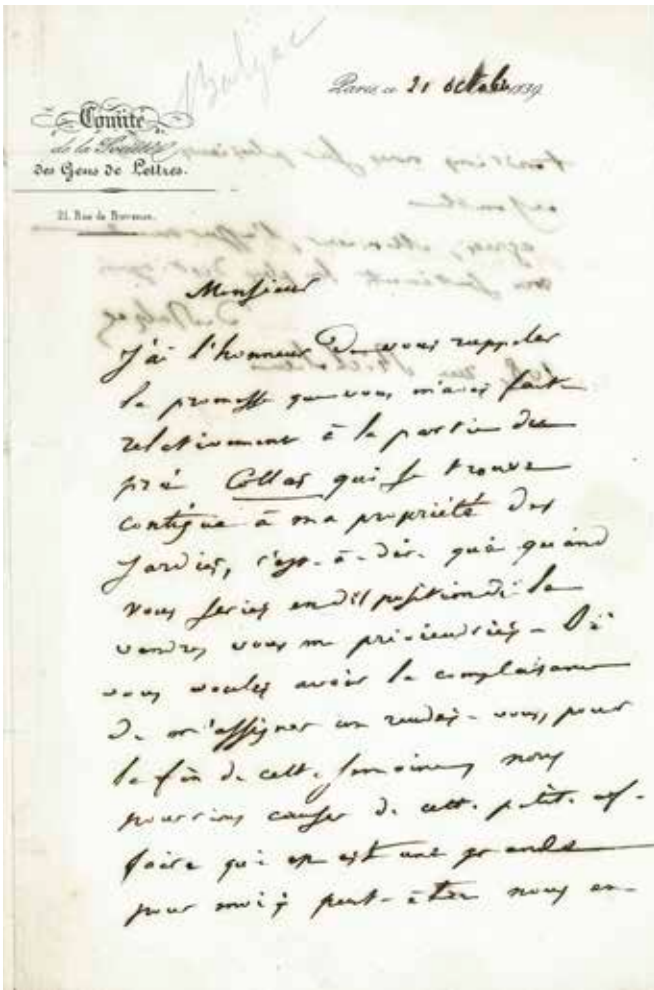 Balzac
Paris, ce 21 octobre 1839
Comité
de la Société
des Gens de Lettres.
21, Rue de Provence.
Monsieur
J'ai l'honneur de vous rappeler
la promesse que vous m'avez faite
relativement à la partie du
pré Collas qui se trouve
contigue à ma propriété des
Jardies, c'est-à-dire que quand
vous seriez en disposition de le
vendre, vous me préviendriez - Si
vous voulez avoir la complaisance
de m'assigner un rendez-vous, pour
la fin de cette semaine, nous
pourrions causer de cette petite af-
faire qui en est une grande
pour moi, peut-être nous en-